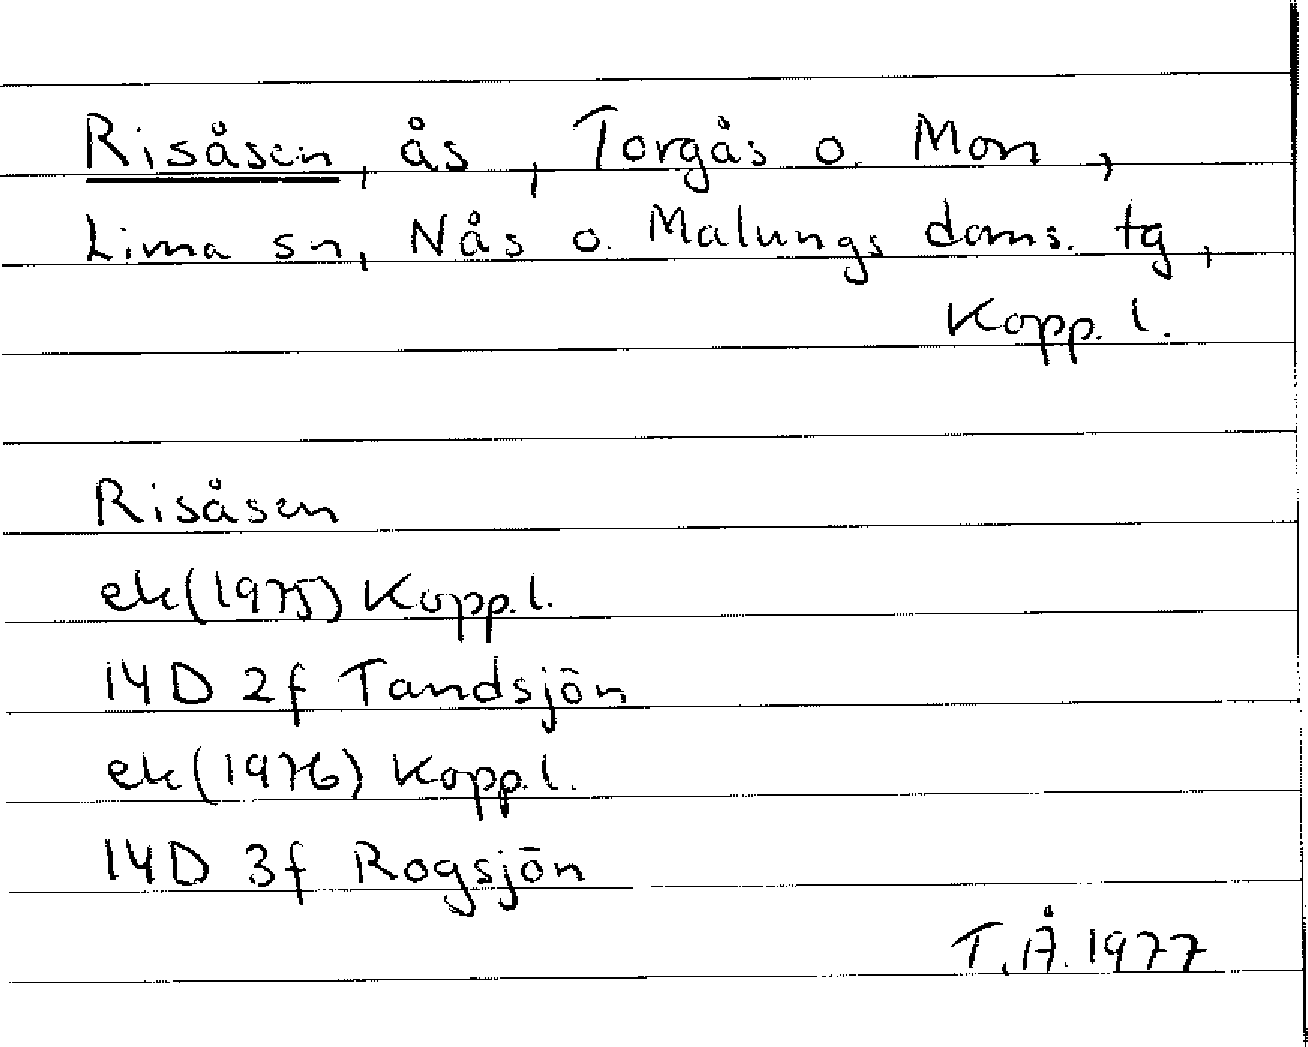 Risåsen, ås, Torgås o. Mon,
Lima sn, Nås o. Malungs doms. tg,
Kopp. l.
Risåsen
ek(1975) Kopp.l.
14D 2f Tandsjön
ek(1976) Kopp.l.
14D 3f Rogsjön
T.Å. 1977